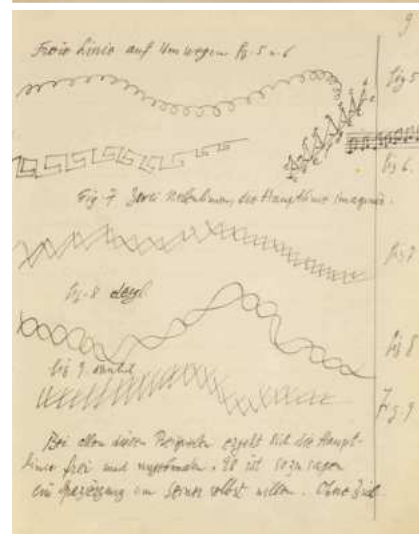 9
Freie Linie auf Umwegen fig. 5 u. 6
fig 5
fig 6.
Fig. 7 Zwei Nebenlinien, die Hauptlinie imaginär.
fig 7
fig. 8 desgl.
fig 8
fig 9
Fig. 9
Bei allen diesen Beispielen ergeht sich die Haupt-
linie frei und ungebunden. Es ist sozusagen
ein Spaziergang um seiner selbst willen. Ohne Ziel.